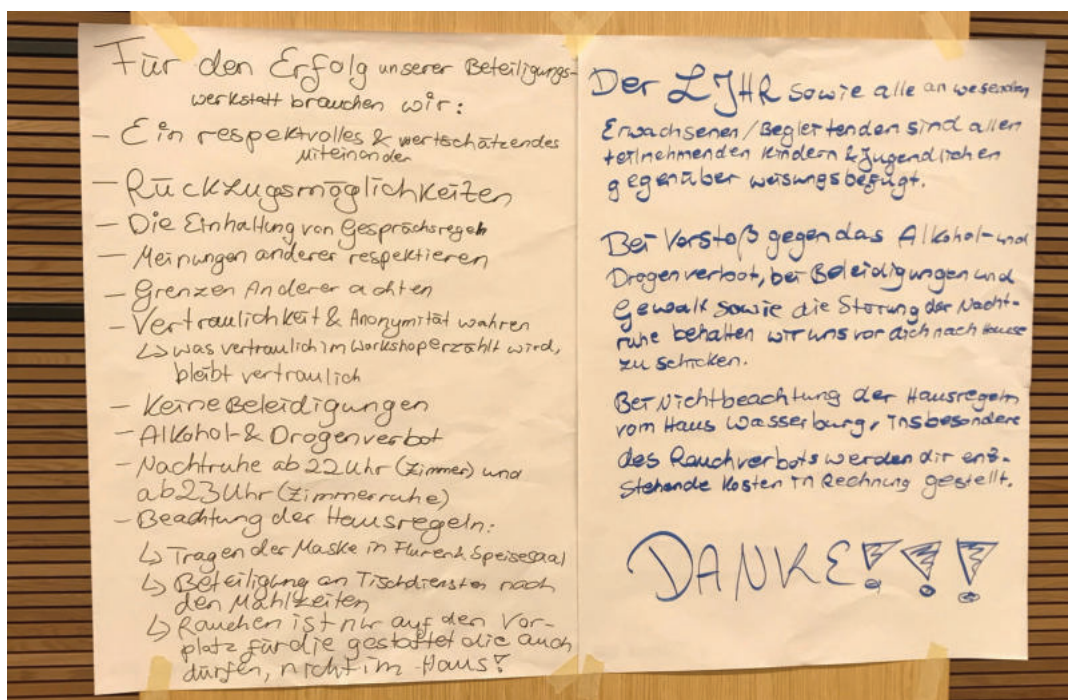 Für den Erfolg unserer Beteiligungs-
werkstatt brauchen wir:
- Ein respektvolles & wertschätzendes
Miteinander
- Rückzugsmöglichkeiten
- Die Einhaltung von Gesprächsregeln
- Meinungen anderer respektieren
- Grenzen Anderer achten
- Vertraulichkeit & Anonymität wahren
↳ was vertraulich im Workshop erzählt wird,
bleibt vertraulich
- Keine Beleidigungen
- Alkohol- & Drogenverbot
- Nachtruhe ab 22 Uhr (Zimmer) und
ab 23 Uhr (Zimmerruhe)
- Beachtung der Hausregeln:
↳ Tragen der Maske in Fluren & Speisesaal
↳ Beteiligung an Tischdiensten nach
den Mahlzeiten
↳ Rauchen ist nur auf den Vor-
platz für die gestattet die auch
dürfen, nicht im Haus!
Der LJHR sowie alle anwesenden
Erwachsenen/Begleitenden sind allen
teilnehmenden Kindern & Jugendlichen
gegenüber weisungsbefugt.
Bei Verstoß gegen das Alkohol- und
Drogenverbot, bei Beleidigungen und
Gewalt sowie die Störung der Nacht-
ruhe behalten wir uns vor dich nach Hause
zu schicken.
Bei Nichtbeachtung der Hausregeln
vom Haus Wasserburg, insbesondere
des Rauchverbots werden dir ent-
stehende Kosten in Rechnung gestellt.
DANKE!!!